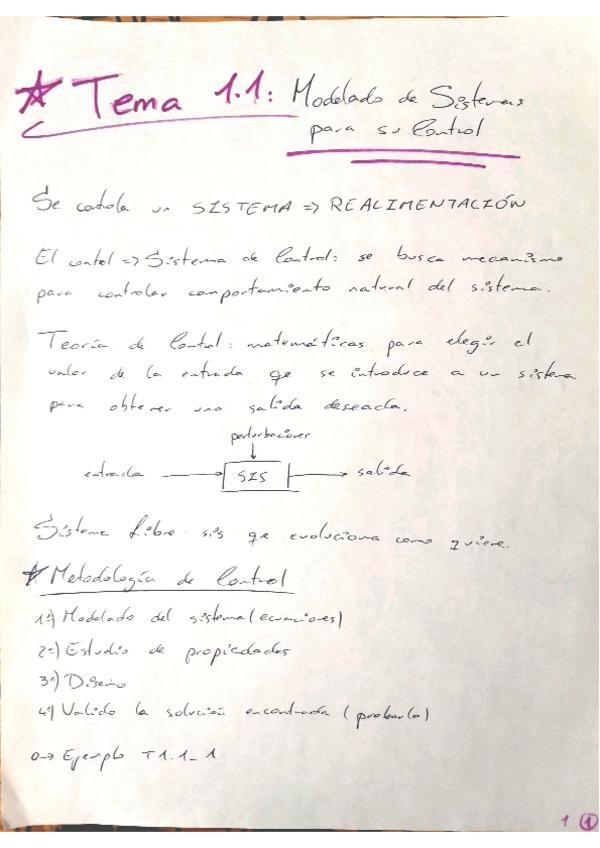 Tema 1.1: Modelado de Sistemas
para su Control
Se controla un SISTEMA => REALIMENTACIÓN
El control => Sistema de Control: se busca mecanismo
para controlar comportamiento natural del sistema.
Teoría de Control: matemáticas para elegir el
valor de la entrada qe se introduce a un sistema
para obtener una salida deseada.
perturbaciones
entrada → SIS → salida
Sistema libre: sis qe evoluciona como quiere.
* Metodología de Control
1º) Modelado del sistema (ecuaciones)
2º) Estudio de propiedades
3º) Diseño
4º) Valido la solución encontrada (probarlo)
0→ Ejemplo T1.1_1
1 1